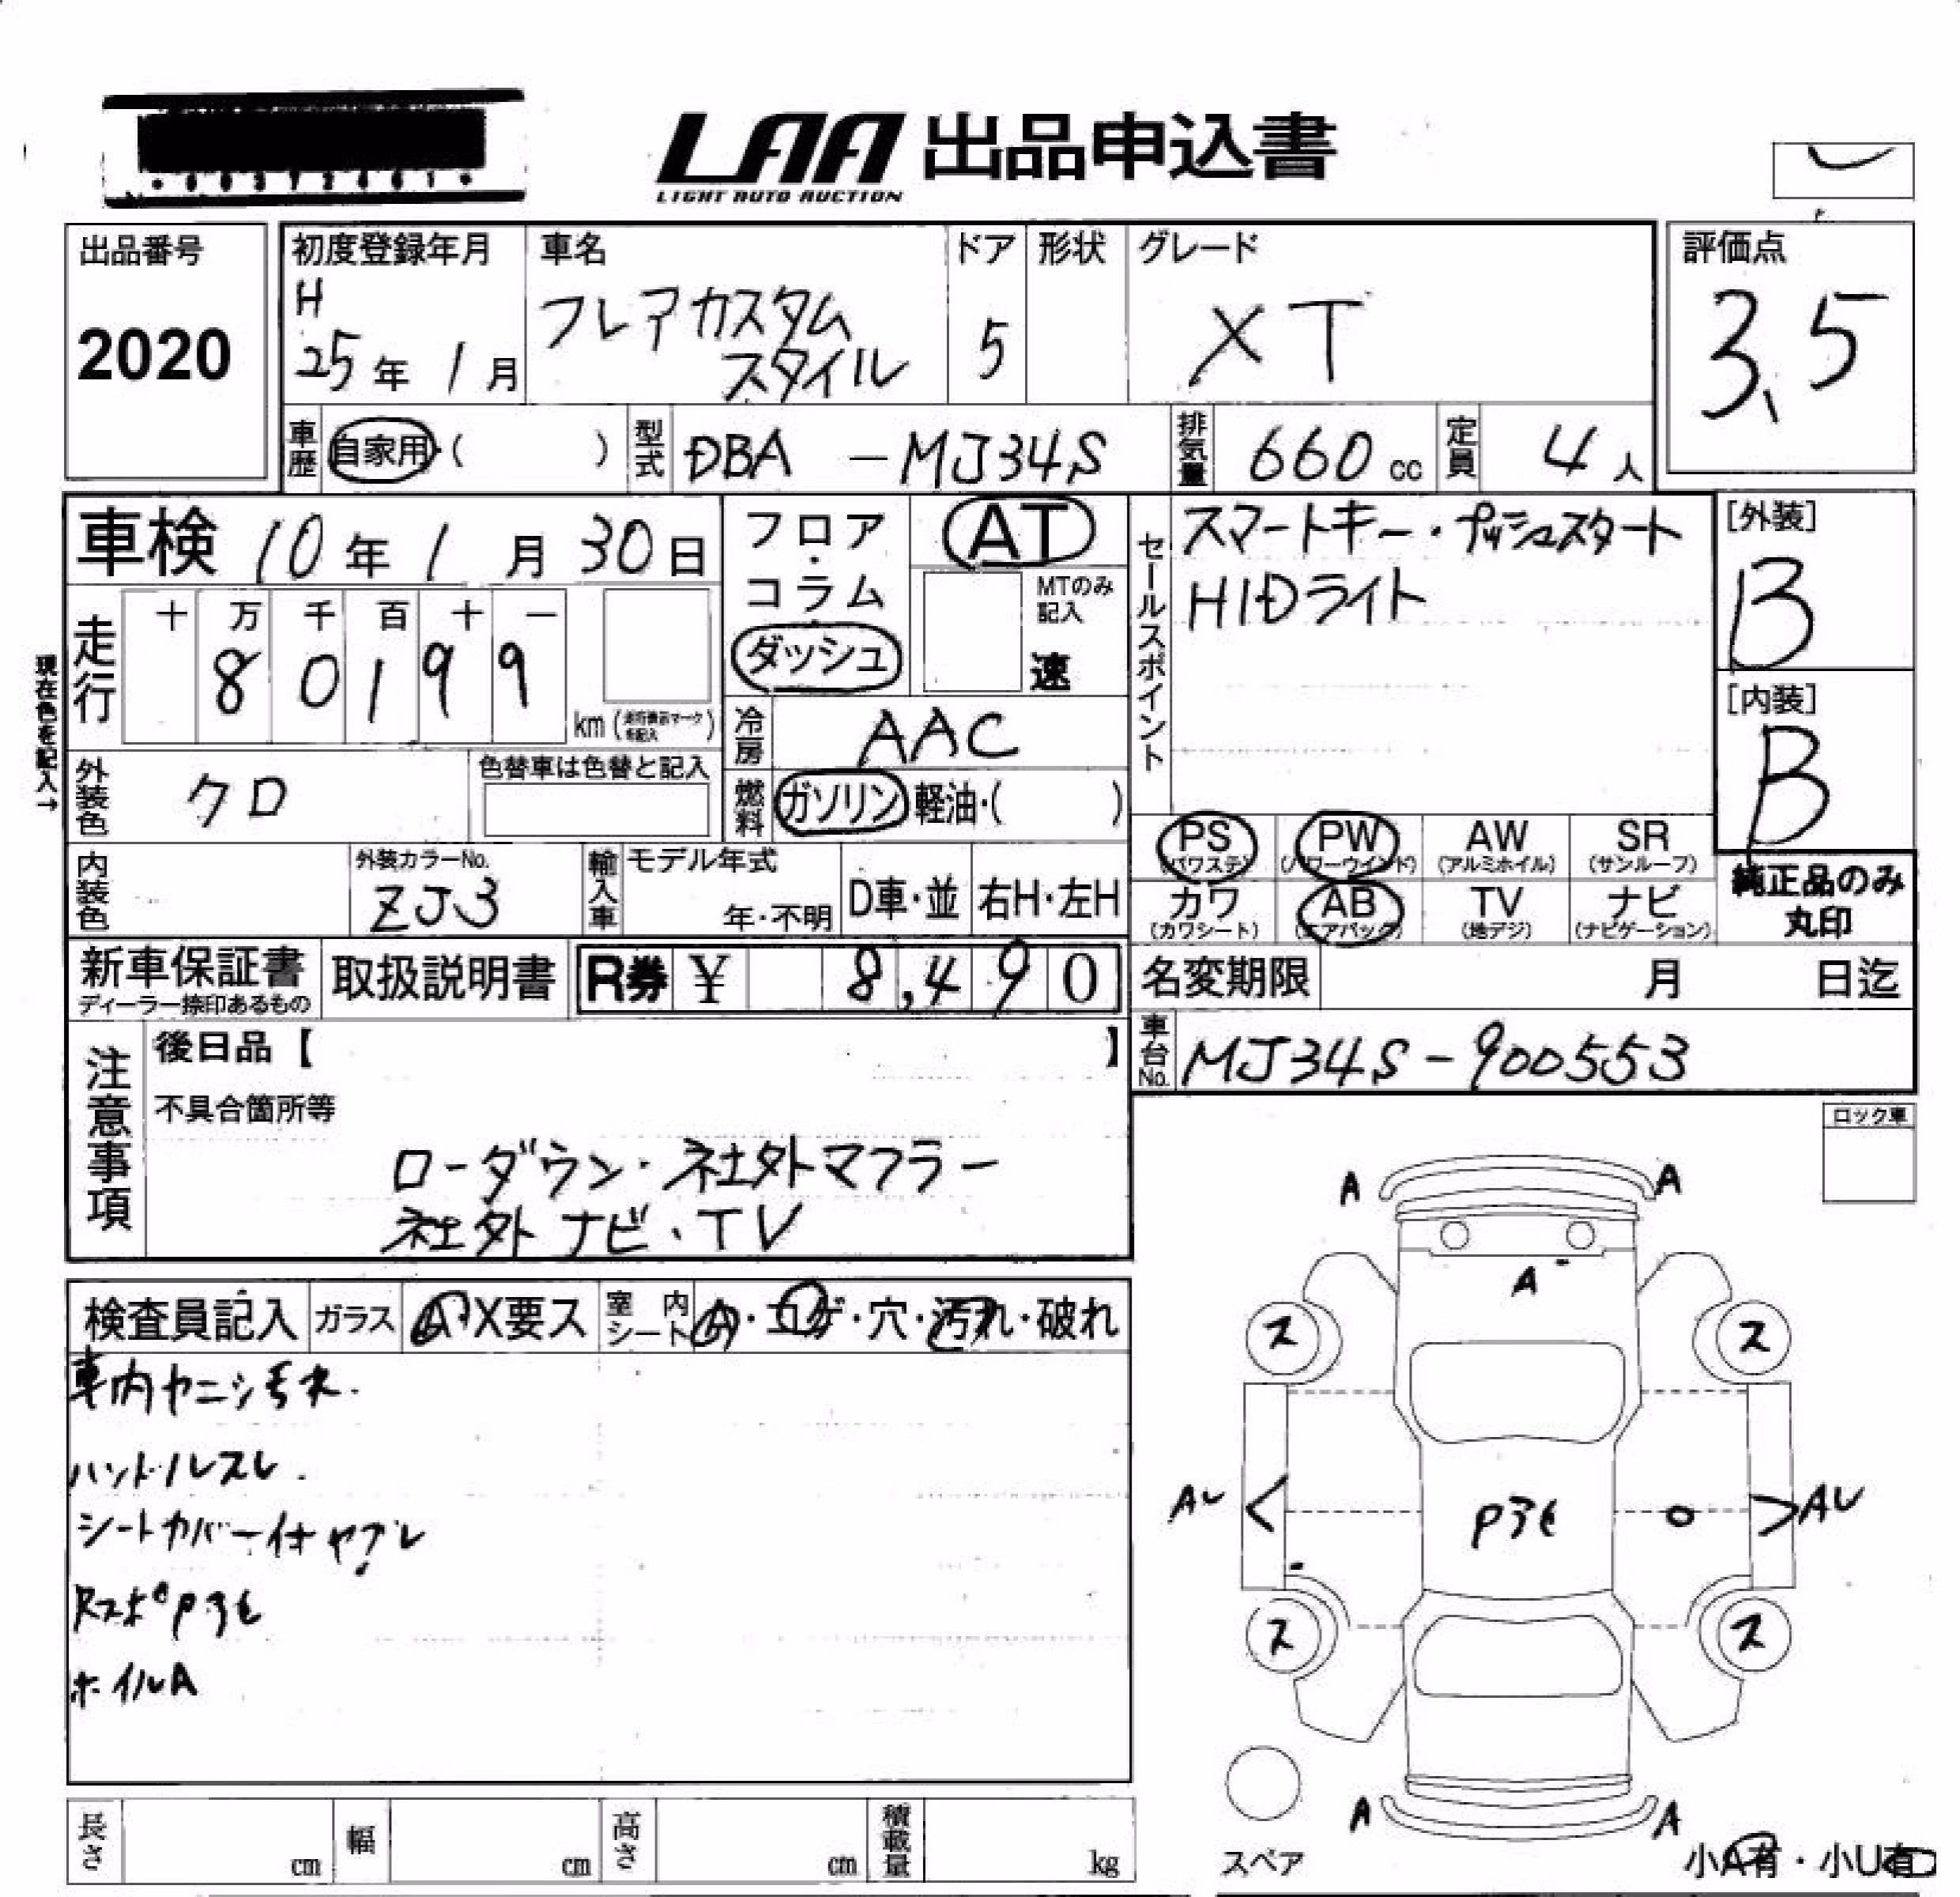 LAA 出品申込書
LIGHT AUTO AUCTION
出品番号
2020
初度登録年月
H
25年 1月
車名
フレアカスタム
スタイル
ドア
5
形状
グレード
XT
評価点
3.5
車歴
自家用・( )
型式
DBA -MJ34S
排気量
660 cc
定員
4人
車検 10年 1月 30日
現在色を記入→
走行
十 万 千 百 十 一
8 0 1 9 9
km
フロア・コラム・ダッシュ
AT
MTのみ記入
速
冷房
AAC
燃料
ガソリン 軽油・( )
セールスポイント
スマートキー・プッシュスタート
HIDライト
[外装]
B
[内装]
B
外装色
クロ
色替車は色替と記入
内装色
外装カラーNo.
ZJ3
輸入車
モデル年式
年・不明
D車・並
右H・左H
PS
(パワステ)
PW
(パワーウインド)
AW
(アルミホイル)
SR
(サンルーフ)
カワ
(カワシート)
AB
(エアバック)
TV
(地デジ)
ナビ
(ナビゲーション)
純正品のみ
丸印
新車保証書
ディーラー捺印あるもの
取扱説明書
R券 ¥ 8,490
名変期限
月 日迄
車台No.
MJ34S-900553
注意事項
後日品【 】
不具合箇所等
ローダウン・社外マフラー
社外ナビ・TV
ロック車
検査員記入
ガラス
A・X要ス
室内シート
A・コゲ・穴・汚れ・破れ
車内ヤニシミ
ハンドルスレ.
シートカバー付ヤブレ
ホイルA
A A
A
ス ス
AU AU
ス ス
A A
スペア
小A有・小U有
長さ
cm
幅
cm
高さ
cm
積載量
kg